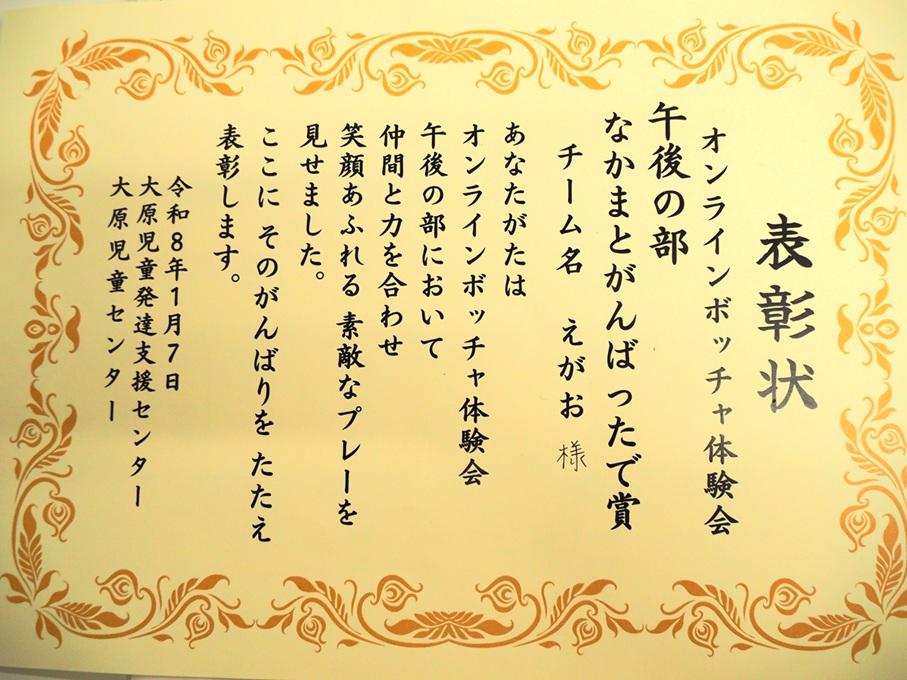 表彰状
オンラインボッチャ体験会
午後の部
なかまとがんばったで賞
チーム名　えがお 様
あなたがたは
オンラインボッチャ体験会
午後の部において
仲間と力を合わせ
笑顔あふれる 素敵なプレーを
見せました。
ここに そのがんばりを たたえ
表彰します。
令和８年１月７日
大原児童発達支援センター
大原児童センター